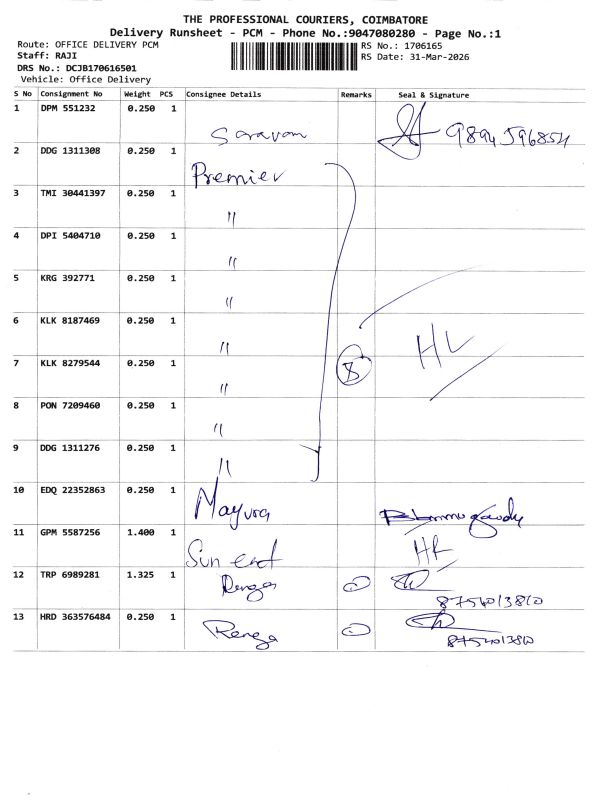 THE PROFESSIONAL COURIERS, COIMBATORE
Delivery Runsheet - PCM - Phone No.:9047080280 - Page No.:1
Route: OFFICE DELIVERY PCM
RS No.: 1706165
Staff: RAJI
RS Date: 31-Mar-2026
DRS No.: DCJB170616501
Vehicle: Office Delivery
S No Consignment No Weight PCS Consignee Details Remarks Seal & Signature
1 DPM 551232 0.250 1
Saravan 9894596854
2 DDG 1311308 0.250 1
Premier
3 TMI 30441397 0.250 1
"
4 DPI 5404710 0.250 1
"
5 KRG 392771 0.250 1
"
6 KLK 8187469 0.250 1
"
7 KLK 8279544 0.250 1
8
"
8 PON 7209460 0.250 1
"
9 DDG 1311276 0.250 1
"
10 EDQ 22352863 0.250 1
Mayura
11 GPM 5587256 1.400 1
Sun
12 TRP 6989281 1.325 1
Renga
8754013810
13 HRD 363576484 0.250 1
Renga